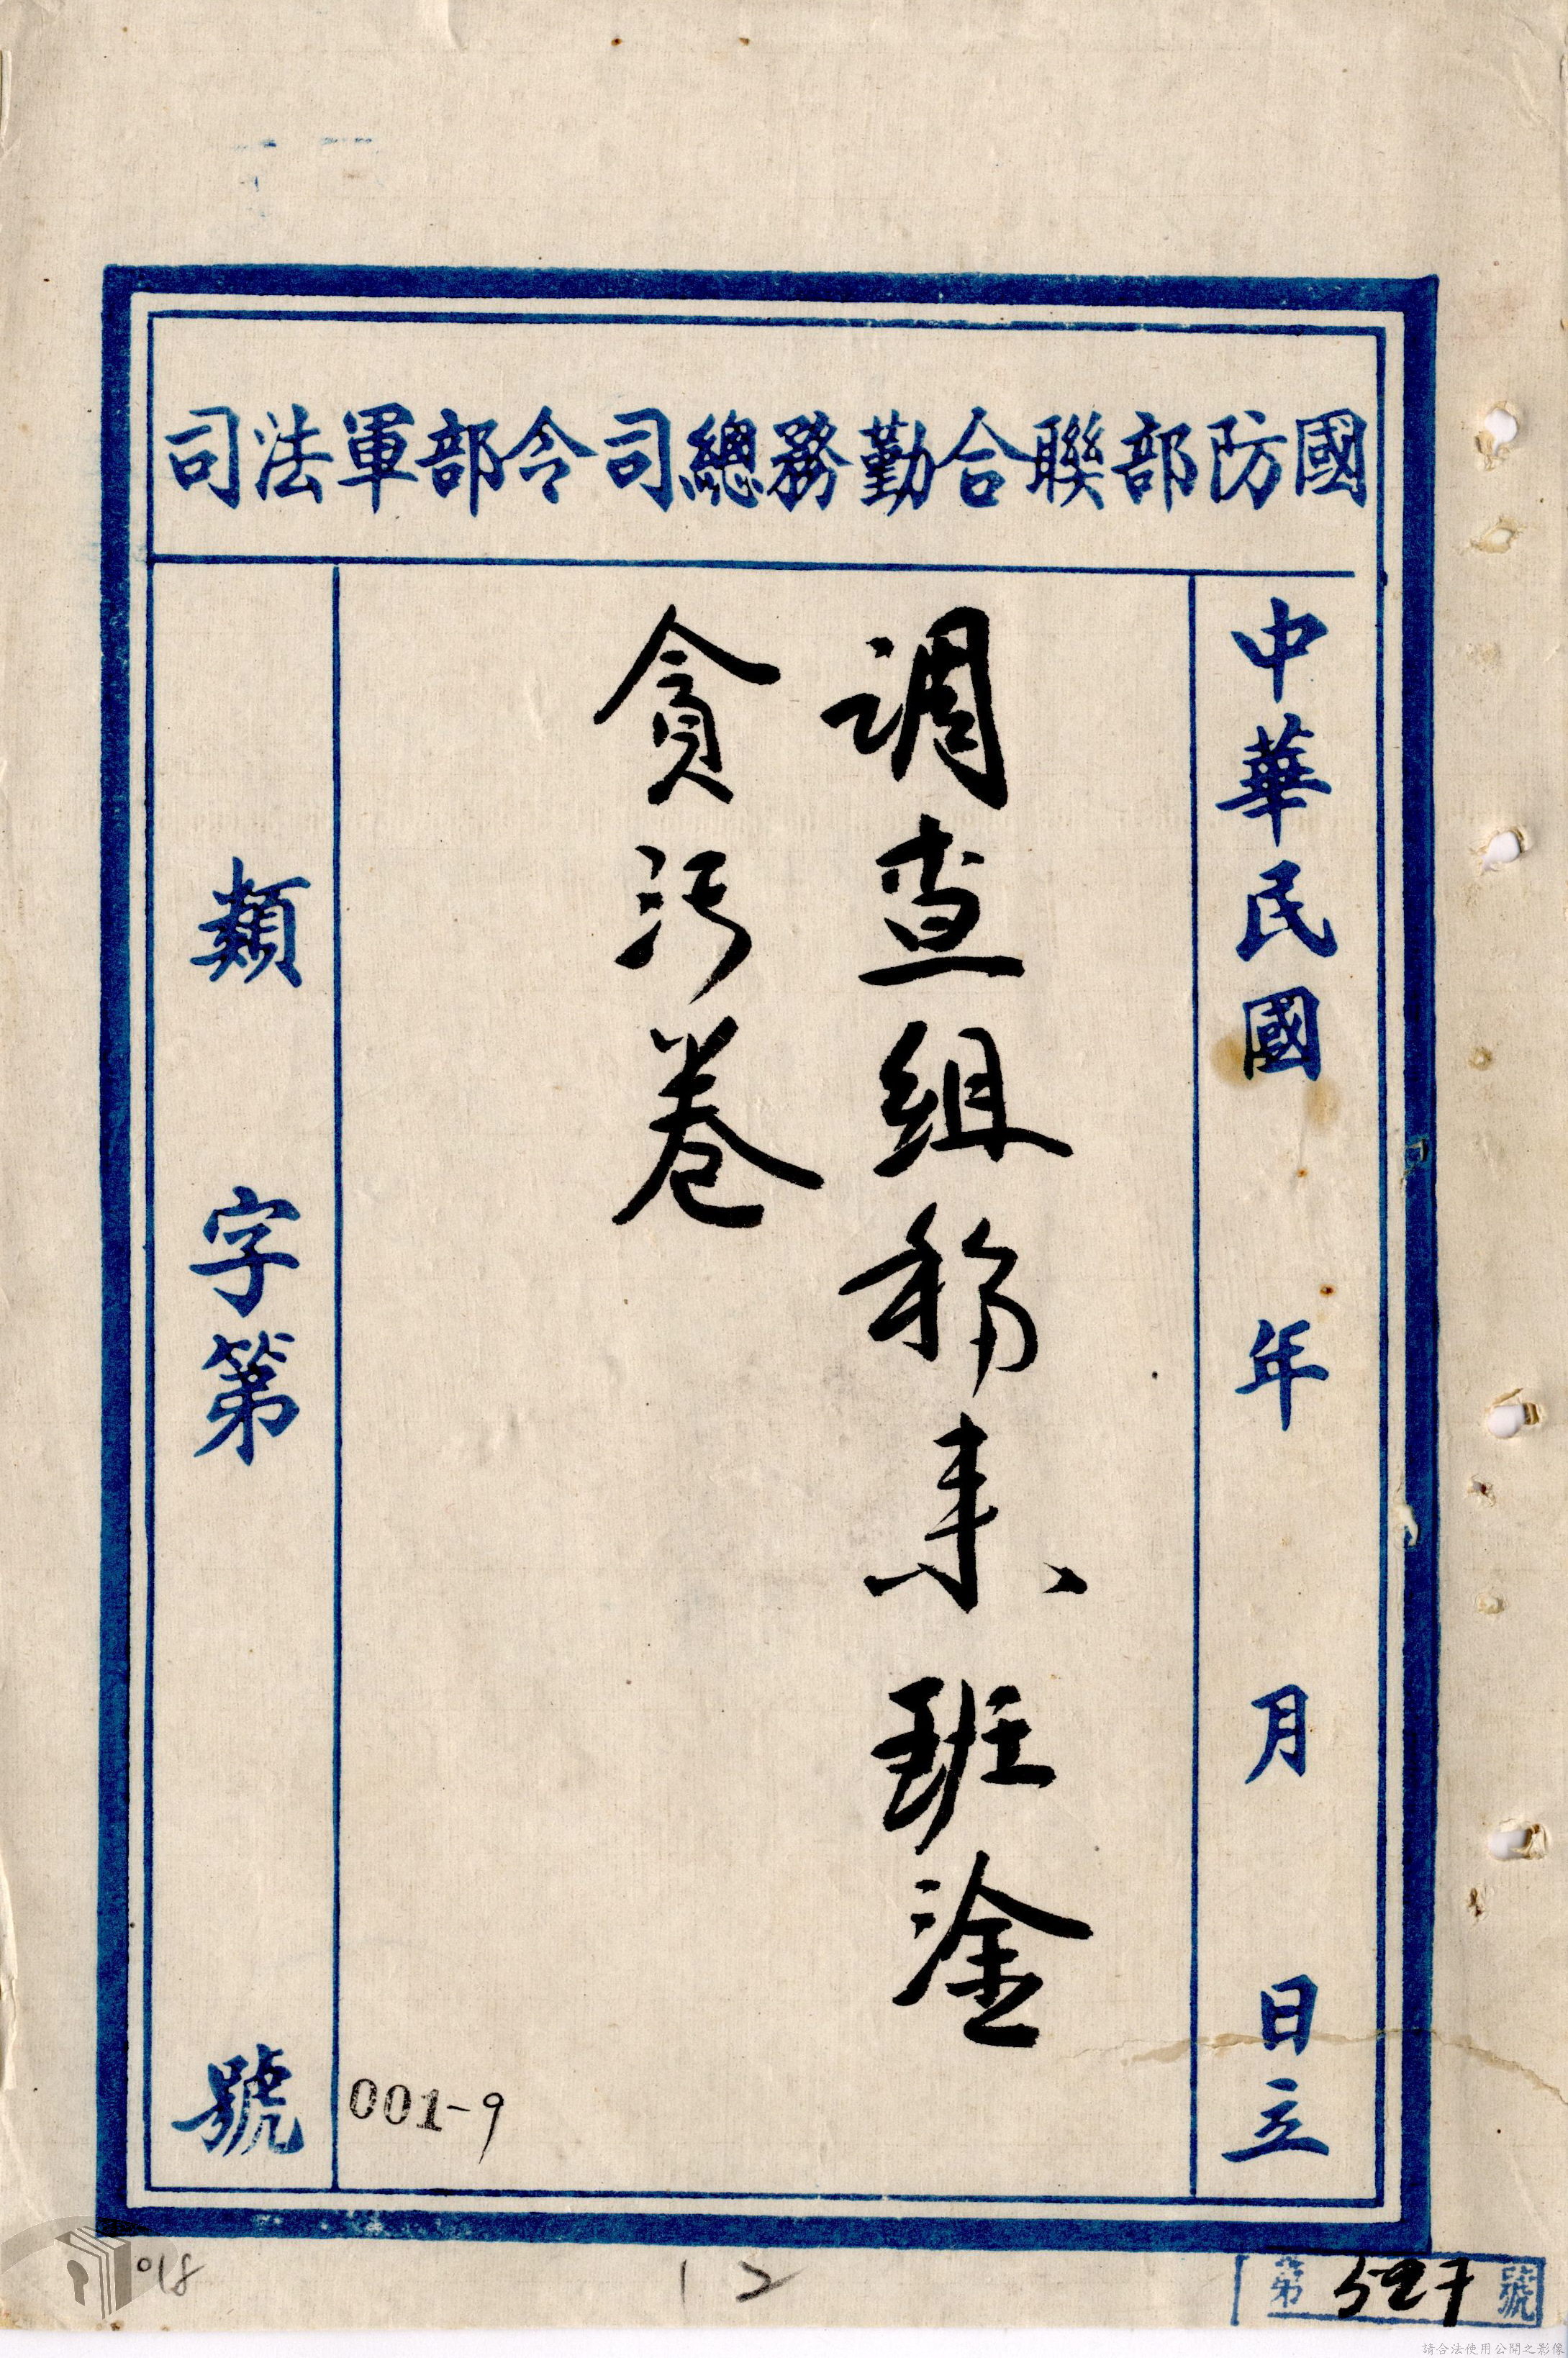 國防部聯合勤務總司令部軍法司
中華民國 年 月 日立
調查組移來 班淦
貪污卷
類 字第 號
001-9
018
12
第527號
請合法使用公開之影像